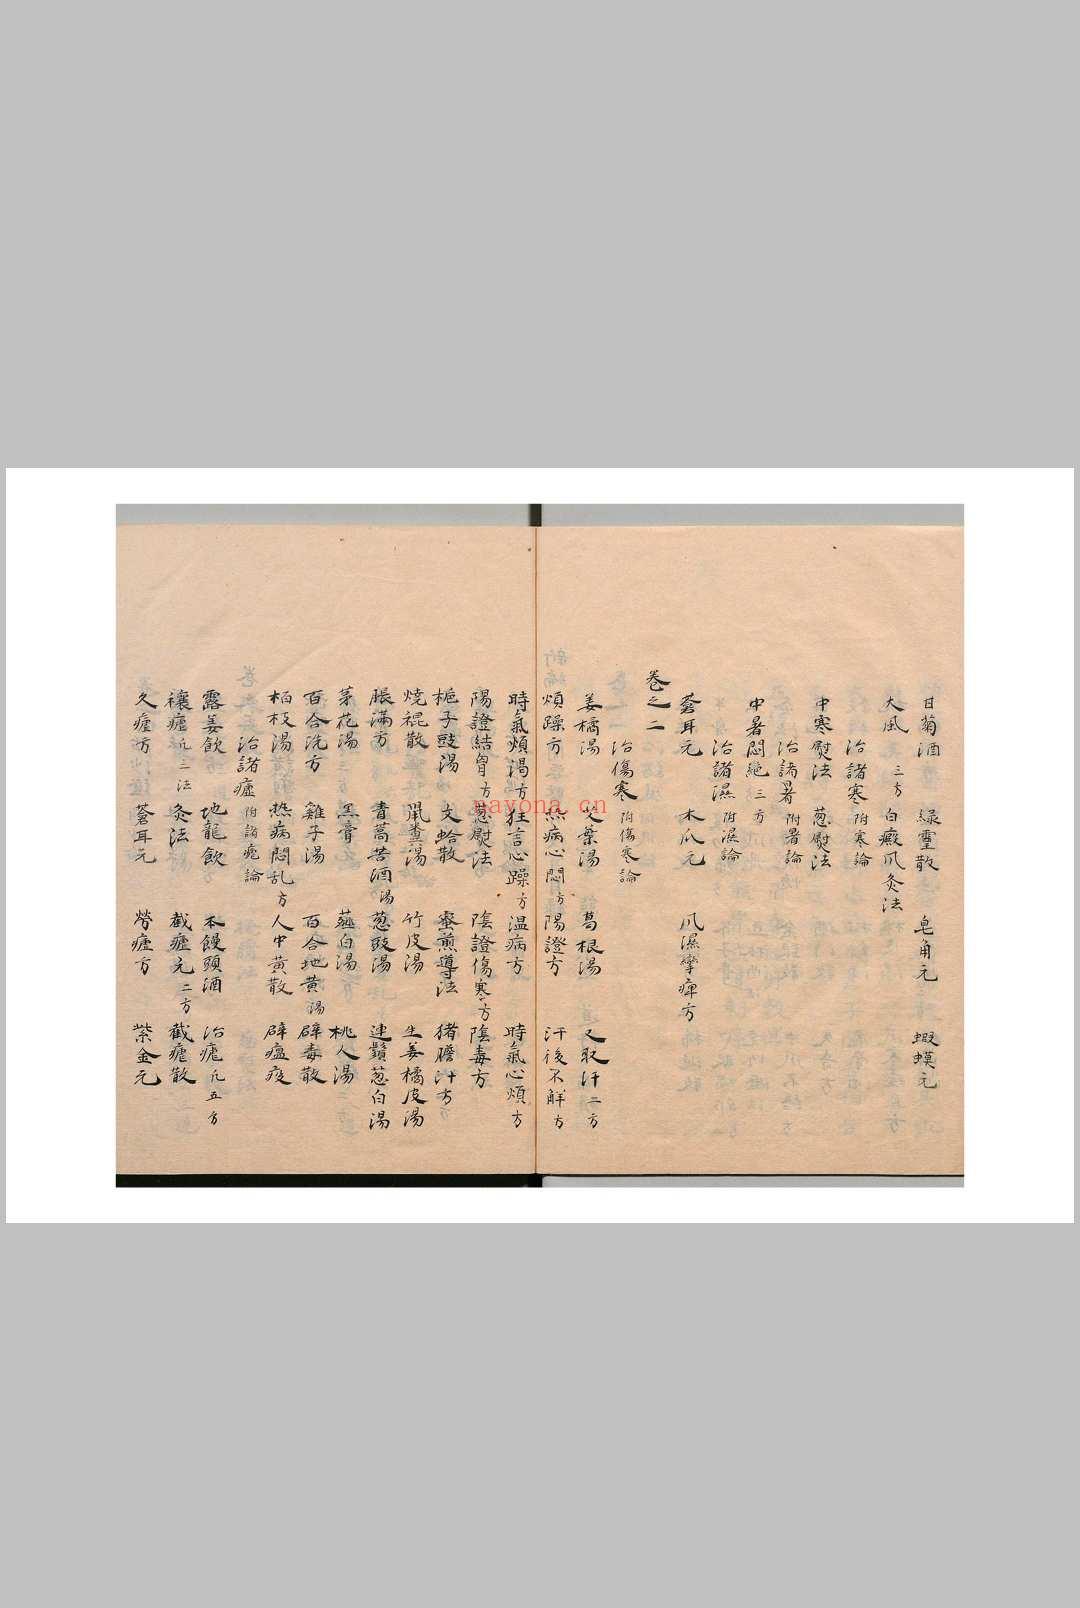 甘菊酒 綠雲散 皂角元 蝦蟆元
大風三方 白癜風灸法
治諸寒附寒論
中寒熨法 葱熨法
治諸暑附暑論
中暑悶絶三方
治諸濕附濕論
蒼耳元 木瓜元 風濕攣痺方
卷之二
治傷寒附傷寒論
姜橘湯 艾葉湯 葛根湯 又取汗二方
煩躁方 熱病心悶方 陽證方 汗後不解方
時氣煩渴方 狂言心躁方 温病方 時氣心煩方
陽證結胷方 葱熨法 陰證傷寒方 陰毒方
梔子豉湯 文蛤散 蜜煎導法 猪膽汁方
燒裩散 鼠糞湯 竹皮湯 生姜橘皮湯
脹滿方 青蒿苦酒湯 葱豉湯 連鬚葱白湯
茅花湯 黑膏 薤白湯 桃人湯
百合洗方 雞子湯 百合地黄湯 辟毒散
栢枝湯 熱病悶乱方 人中黄散 辟瘟疫
治諸瘧附諸瘧論
露姜飲 地龍飲 本饅頭酒 治瘧凡五方
禳瘧凡三法 灸法 截瘧元二方 截瘧散
久瘧方 蒼耳元 勞瘧方 紫金元
nayona.cn